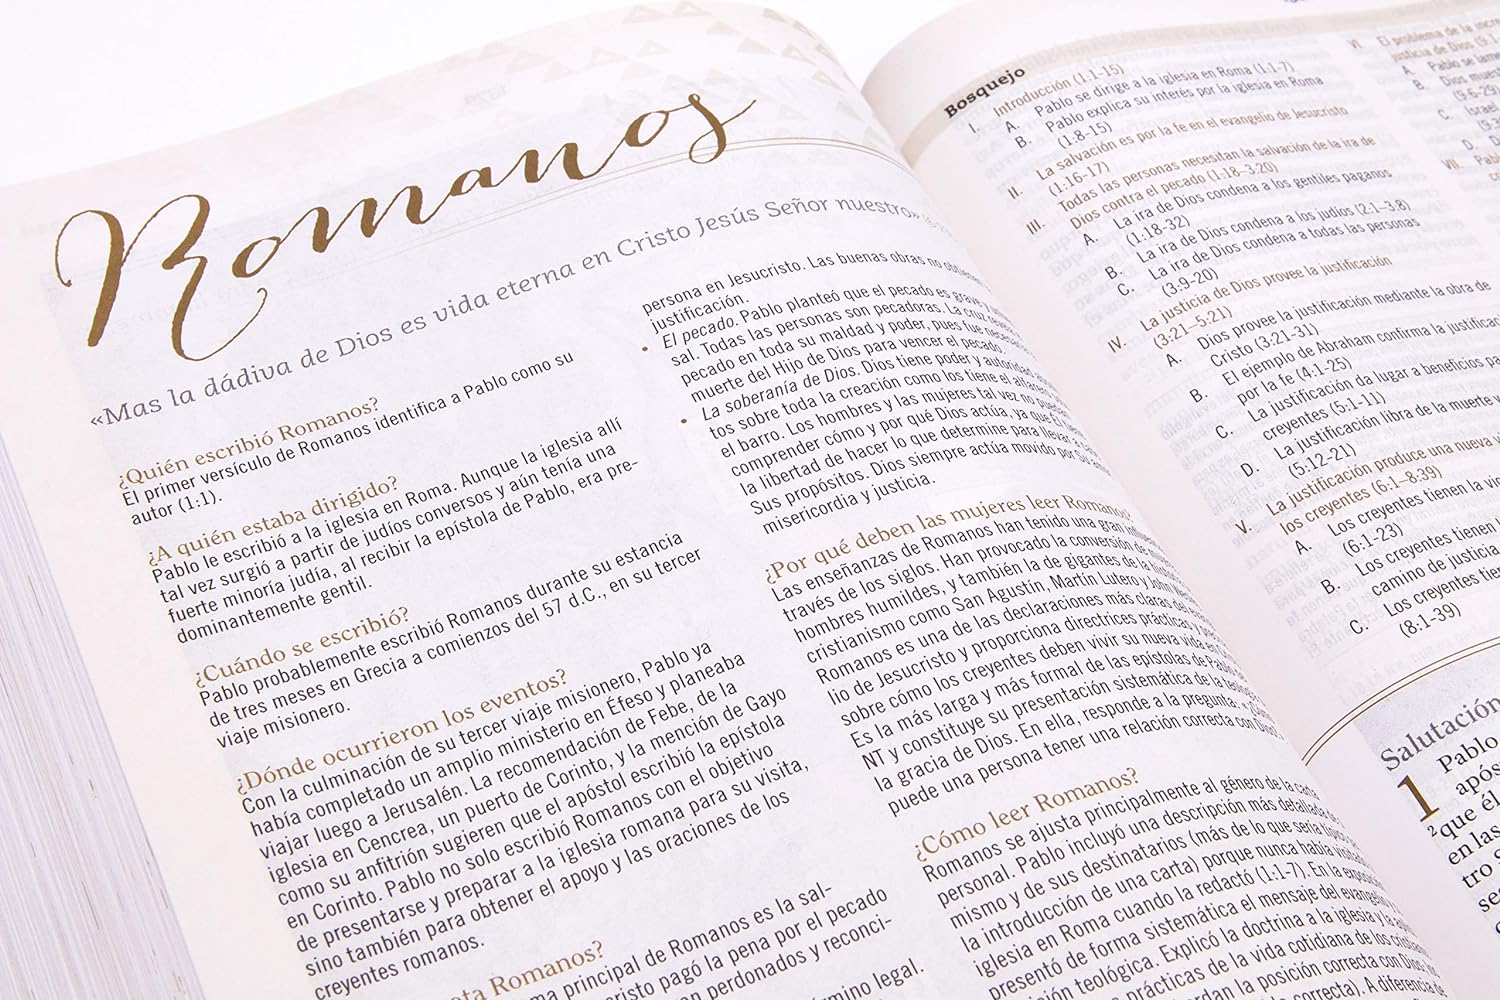 Romanos
«Mas la dádiva de Dios es vida eterna en Cristo Jesús Señor nuestro»
¿Quién escribió Romanos?
El primer versículo de Romanos identifica a Pablo como su
autor (1:1).
¿A quién estaba dirigido?
Pablo le escribió a la iglesia en Roma. Aunque la iglesia allí
tal vez surgió a partir de judíos conversos y aún tenía una
fuerte minoría judía, al recibir la epístola de Pablo, era pre-
dominantemente gentil.
¿Cuándo se escribió?
Pablo probablemente escribió Romanos durante su estancia
de tres meses en Grecia a comienzos del 57 d.C., en su tercer
viaje misionero.
¿Dónde ocurrieron los eventos?
Con la culminación de su tercer viaje misionero, Pablo ya
había completado un amplio ministerio en Éfeso y planeaba
viajar luego a Jerusalén. La recomendación de Febe, de la
iglesia en Cencrea, un puerto de Corinto, y la mención de Gayo
como su anfitrión sugieren que el apóstol escribió la epístola
en Corinto. Pablo no solo escribió Romanos con el objetivo
de presentarse y preparar a la iglesia romana para su visita,
sino también para obtener el apoyo y las oraciones de los
creyentes romanos.
Romanos?
principal de Romanos es la sal-
cristo pagó la pena por el pecado
perdonados y reconci-
término legal.
persona en Jesucristo. Las buenas obras no
justificación.
• El pecado. Pablo planteó que el pecado es grave y
sal. Todas las personas son pecadoras. La cruz
pecado en toda su maldad y poder, pues fue
muerte del Hijo de Dios para vencer el pecado.
• La soberanía de Dios. Dios tiene poder y autoridad
tos sobre toda la creación como los tiene el alfarero
el barro. Los hombres y las mujeres tal vez no
comprender cómo y por qué Dios actúa, ya que Él tiene
la libertad de hacer lo que determine para llevar a
Sus propósitos. Dios siempre actúa movido por Su
misericordia y justicia.
¿Por qué deben las mujeres leer Romanos?
Las enseñanzas de Romanos han tenido una gran
través de los siglos. Han provocado la conversión de
hombres humildes, y también la de gigantes de la
cristianismo como San Agustín, Martín Lutero y John
Romanos es una de las declaraciones más claras del
lio de Jesucristo y proporciona directrices prácticas y
sobre cómo los creyentes deben vivir su nueva vida en
Es la más larga y más formal de las epístolas de Pablo
NT y constituye su presentación sistemática de la
la gracia de Dios. En ella, responde a la pregunta:
puede una persona tener una relación correcta con Dios?
¿Cómo leer Romanos?
Romanos se ajusta principalmente al género de la carta
personal. Pablo incluyó una descripción más detallada de
mismo y de sus destinatarios (más de lo que sería
la introducción de una carta) porque nunca había
iglesia en Roma cuando la redactó (1:1-7). En la
presentó de forma sistemática el mensaje del
sición teológica. Explicó la doctrina a la iglesia y la
prácticas de la vida cotidiana de los
la posición correcta con Dios,
A diferencia de
Bosquejo
I. Introducción (1:1-15)
A. Pablo se dirige a la iglesia en Roma (1:1-7)
B. Pablo explica su interés por la iglesia en Roma
(1:8-15)
II. La salvación es por la fe en el evangelio de Jesucristo
(1:16-17)
III. Todas las personas necesitan la salvación de la ira de
Dios contra el pecado (1:18-3:20)
A. La ira de Dios condena a los gentiles paganos
(1:18-32)
B. La ira de Dios condena a los judíos (2:1–3.8)
C. La ira de Dios condena a todas las personas
(3:9-20)
IV. La justicia de Dios provee la justificación
(3:21–5:21)
A. Dios provee la justificación mediante la obra de
Cristo (3:21-31)
B. El ejemplo de Abraham confirma la
por la fe (4:1-25)
C. La justificación da lugar a beneficios
creyentes (5:1-11)
D. La justificación libra de la muerte y
(5:12-21)
V. La justificación produce una nueva
los creyentes (6:1–8:39)
A. Los creyentes tienen la
(6:1-23)
B. Los creyentes tienen
camino de justicia.
C. Los creyentes
(8:1-39)
VI. El problema de la
justicia de Dios
A. Pablo se
B. Dios
(9:6-29)
C. Israel
D.
VII.
Salutación
1 Pablo
2 que él
en las